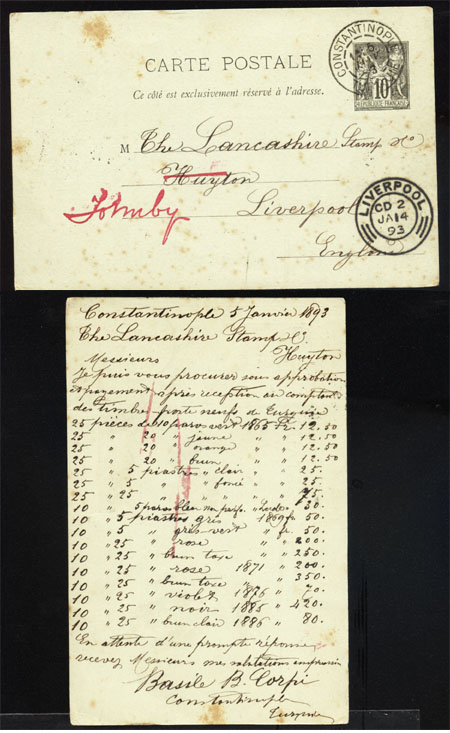 CARTE POSTALE
Ce côté est exclusivement réservé à l'adresse.
CONSTANTINOPLE
10
REPUBLIQUE FRANÇAISE
M The Lancashire Stamp &Co
Huyton
Liverpool
England
LIVERPOOL
CD 2
JA 14
93
Constantinople 5 Janvier 1893
The Lancashire Stamp &C.
Huyton
Messieurs
Je puis vous procurer sous approbation
et payement après réception au comptant
des timbre poste neufs de Turquie
25 pièces de 10 paras vert 1865 Fr. 12.50
25 " " 20 " jaune " " 12.50
25 " " 20 " orange " " 12.50
25 " " 20 " brun " " 12.50
25 " 5 piastres clair " " 25.
25 " 5 " " foncé " " 25.
25 " 25 " " " " 75.
10 " 5 paras bleu non perf. " 30.
10 " 5 piastres gris 1869 fr 50.
10 " 5 " gris vert " fr 50.
10 " 25 " rose " " 200.
10 " 25 " brun taxe " " 250.
10 " 25 " rose 1871 " 200.
10 " 25 " brun taxe " " 350.
10 " 25 " violet 1876 " 70.
10 " 25 " noir 1885 " 420.
10 " 25 " brun clair 1886 " 80.
En attente d'une prompte réponse
recevez Messieurs mes salutations
Basile B. Corpi
Constantinople
Turquie